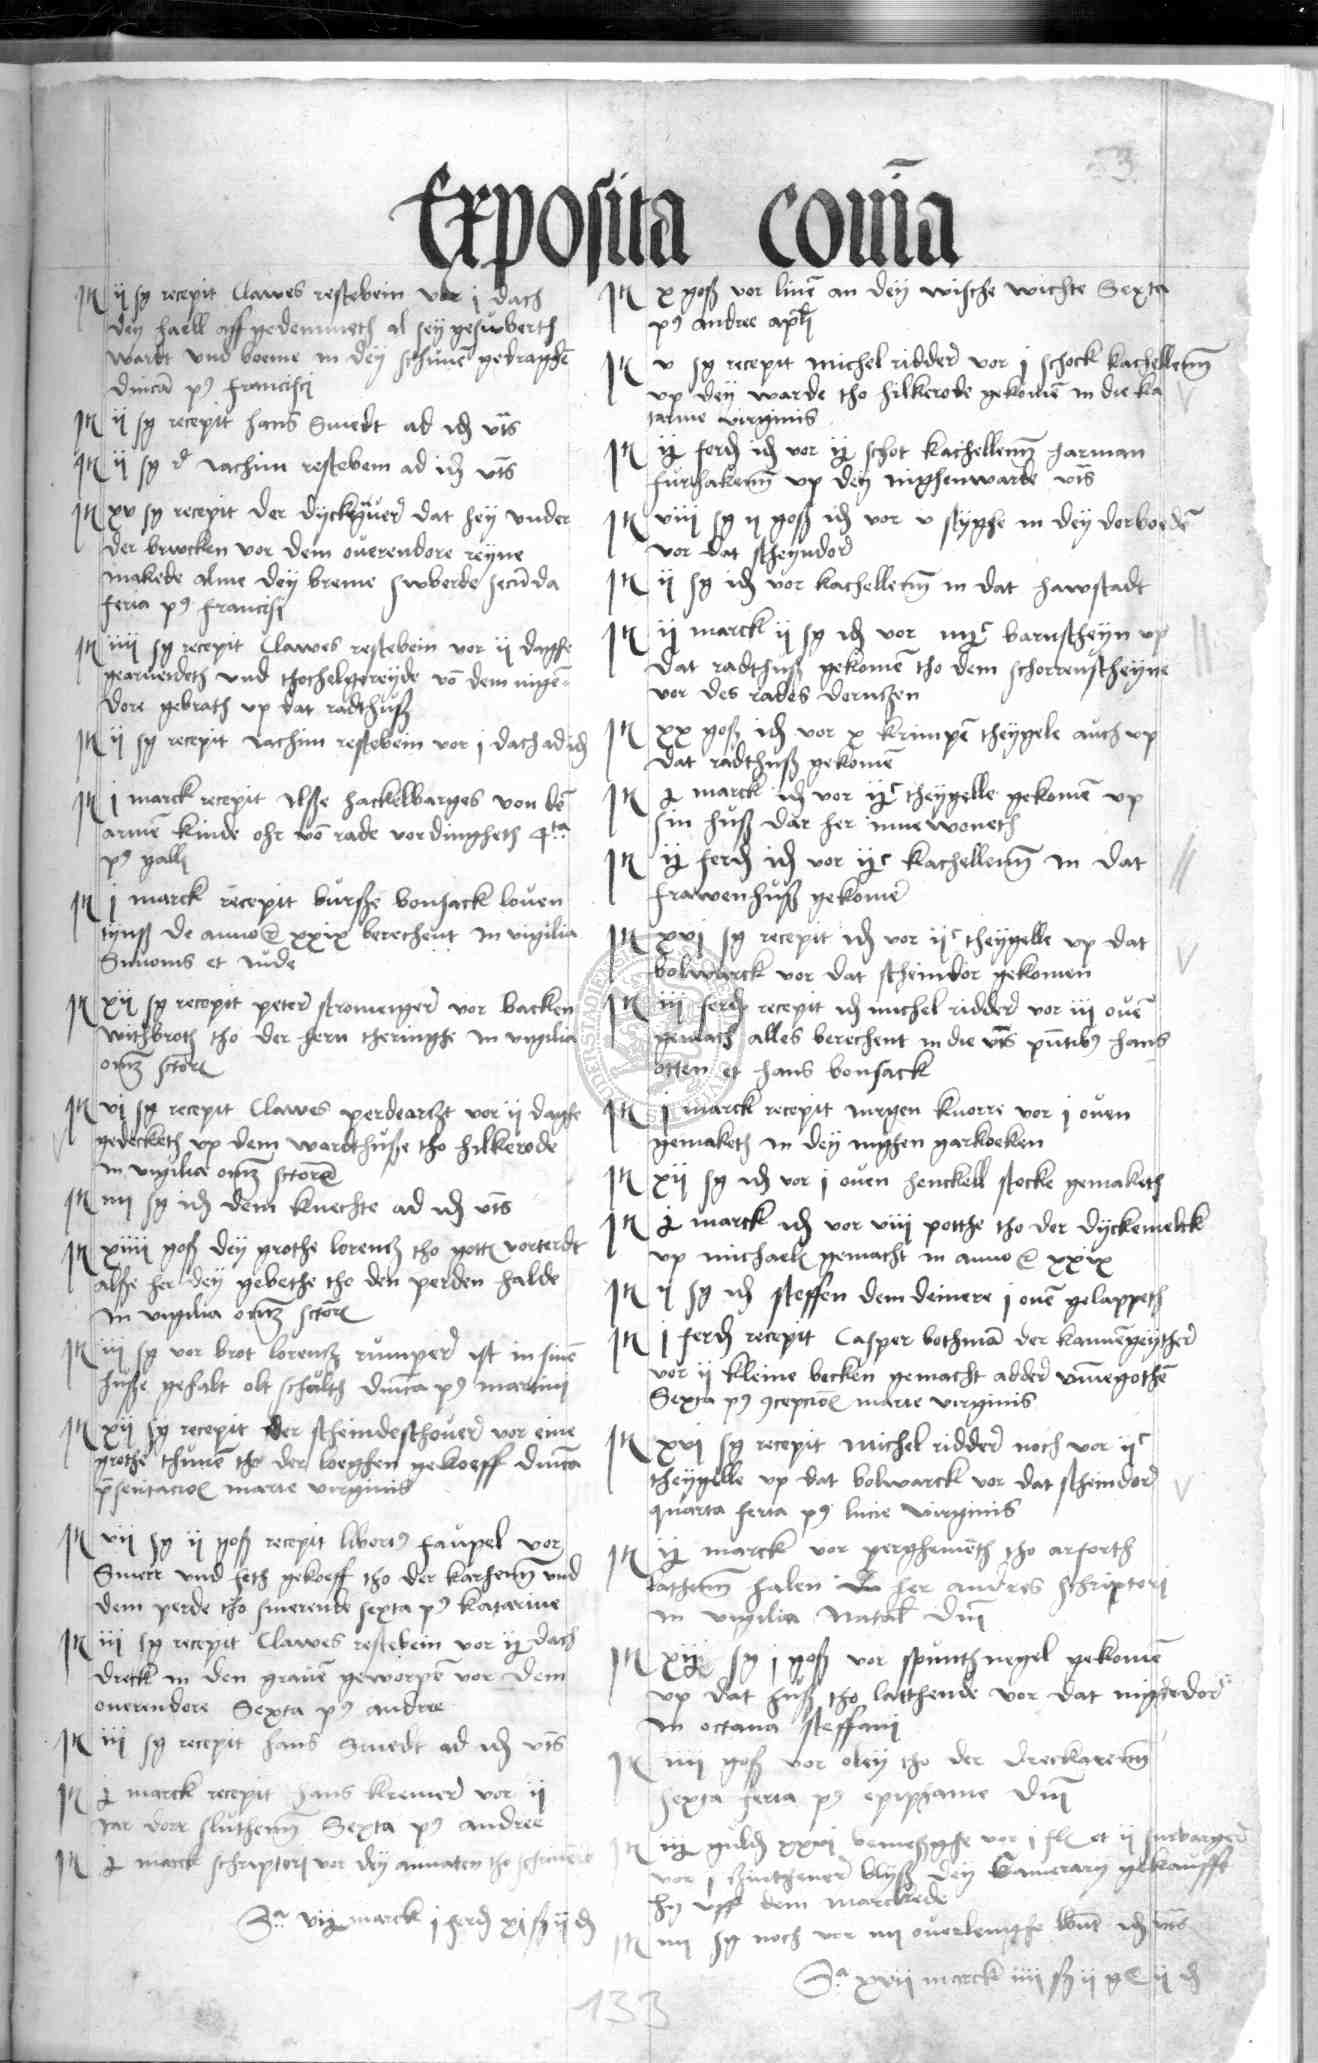 Exposita com̄a
It ij sg recepit Clawes restebein vor j dach
dey haell aff gedemmeth al sey gesuverth
wardt vnd boeme in dey schunē gedraghē
dm̄ca pꝰ Francisci
It ij sg recepit hans Smedt ad idē vts
It ij sg rᵗ Jachim restebein ad idē vts
It xv sg recepit der dyckgruer dat hey vnder
der brucken vor dem ouerendore reyne
makede alme dey breme suverde secūda
feria pꝰ francisi
It iiij sg recepit Clawes restebein vor ij daghe
gearueideth vnd thochelgereyde vō dem nigen
dore gebrath vp dat radthuß
It ij sg recepit Jachim restebein vor j dach ad idē
It j marck recepit Ilsse hackelbarges von dē
armē kinde ohr vō rade vordingheth 4ta
pꝰ galli
It j marck recepit bursse bonsack louen
tynß de anno xxix berechent in vigilia
Simonis et Jude
It xij sg recepit peter stromeiger vor backen
withbroth tho der hern theringhe in vigilia
om̄ sctor
It vj sg recepit Clawes perdearczt vor ij daghe
gedecketh vp dem wardthusse tho hilkerode
in vigilia om̄ sctor
It iiij sg idē dem knechte ad idē vts
It xiiij goß dey grothe lorentz tho gotti vorterdt
alse her dey gebethe tho den perden halde
in vigilia om̄ sctor
It iij sg vor brot lorentz rumper ist in sinē
husse gehalt olt schulth dm̄ca pꝰ martinj
It xij sg recepit der steindeschouer vor eine
grothe thunē tho der woeghen gekoeff dm̄ca
p̄sentacioē marie virginis
It vij sg ij goß recepit liborꝰ faupel vor
Smeer vnd feth gekoeff tho der karhenn vnd
dem perde tho smerende sexta pꝰ katarine
It iij sg recepit Clawes restebein vor ij dach
dreck in den grauē geworpē vor dem
ouerendore Sexta pꝰ andree
It iij sg recepit hans Smedt ad idē vts
It j marck recepit hans kremer vor ij
par dore sluthenn Sexta pꝰ andree
It j marck schriptori vor dey annaten tho schriuē
Sᵃ vij marck j ferd xj ß ij d
It x goß vor linē an dey wische wichte Sexta
pꝰ andree apli
It v sg recepit michel ridder vor j schock kachellenn
vp dey warde tho hilkerode gekomē in die ka
tarine virginis
It ij ferd idē vor ij schok kachellenn harman
furhakenn vp dey nighenwarde vts
It viij sg ij goß idē vor v styghe in dey dorboedē
vor dat steyndor
It ij sg idē vor kachellenn in dat hawstadt
It ij marck ij sg idē vor iiijᶜ barnsteyn vp
dat radthuß gekomē tho dem schorrensteyne
vor des rades dorntzen
It xx goß idē vor x krimpē theygele auch vp
dat radthuß gekomē
It j marck idē vor ijᶜ theygelle gekomē vp
sin huß dar her inne woneth
It ij ferd idē vor ijᶜ kachellenn in dat
frawenhuß gekomē
It xvj sg recepit idē vor ijᶜ theygelle vp dat
bolwarck vor dat steindor gekomen
It iij ferd recepit idē michel ridder vor iij ouē
gemach alles berechent in die vts p̄ntibꝰ hans
otten et hans bonsack
It j marck recepit Jurgen knorre vor j ouen
gemaketh in dey nighen garkoeken
It xij sg idē vor j ouen henckell stocke gemaketh
It j marck idē vor viij potthe tho der dyckemelck
vp michaeli gemacht in anno xxix
It ij sg idē steffen dem deinere j ouē gelappeth
It j ferd recepit Casper bothmā der kannēgeyther
vor ij kleine becken gemacht adder vmmegothē
Sexta pꝰ ꝯcepcioē marie virginis
It xvj sg recepit michel ridder noch vor ijᶜ
theygelle vp dat bolwarck vor dat steindor
quarta feria pꝰ lucie virginis
It ij marck vor perghementh tho arforth
lathenn halen her andres schriptori
in vigilia Natal dm̄
It xij sg j goß vor spunthnegel gekomē
vp dat huß tho latthende vor dat nyghedor
in octaua steffani
It iiij goß vor oley tho der dreckarenn
sexta feria pꝰ epiphanie dm̄
It iij guld xxvj vor j fl et ij
vor j dey Camerary gekaufft
vff dem marckede
It iiij sg noch vor idē vts
Sᵃ xvij marck iiij ß ij g ij d
133